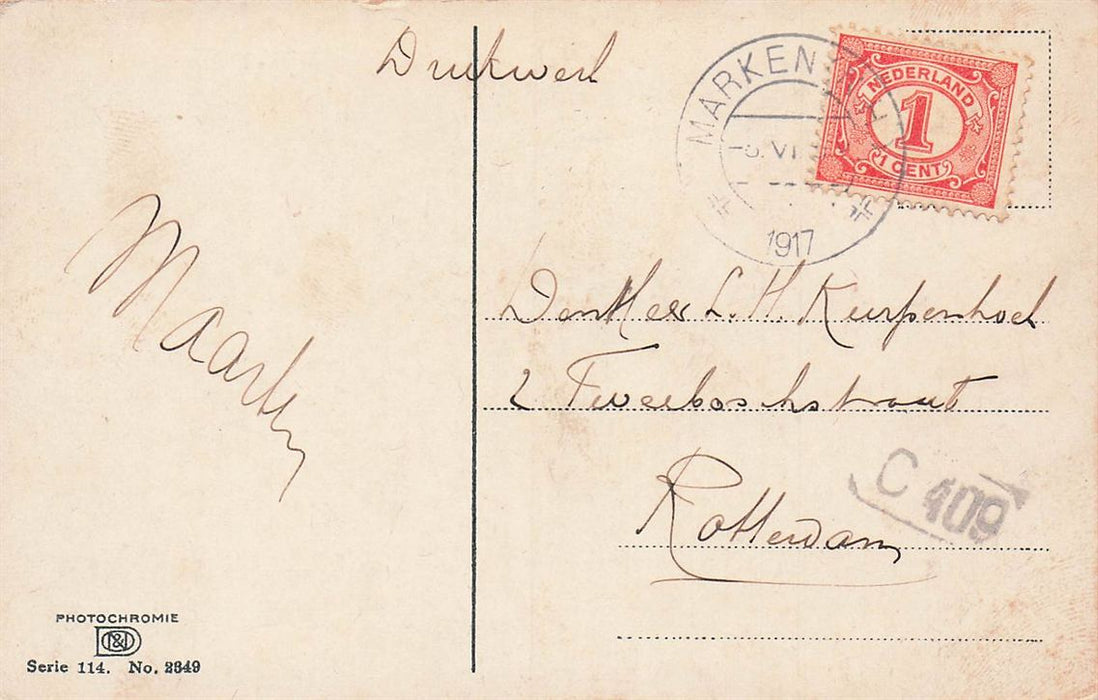 Drukwerk
MARKEN
VI
1917
NEDERLAND
1
1 CENT
Maarten
Den Heer L. H. Kurpenhoek
2 Tweeboschstraat
Rotterdam
C 409
PHOTOCHROMIE
D&D
Serie 114. No. 2349